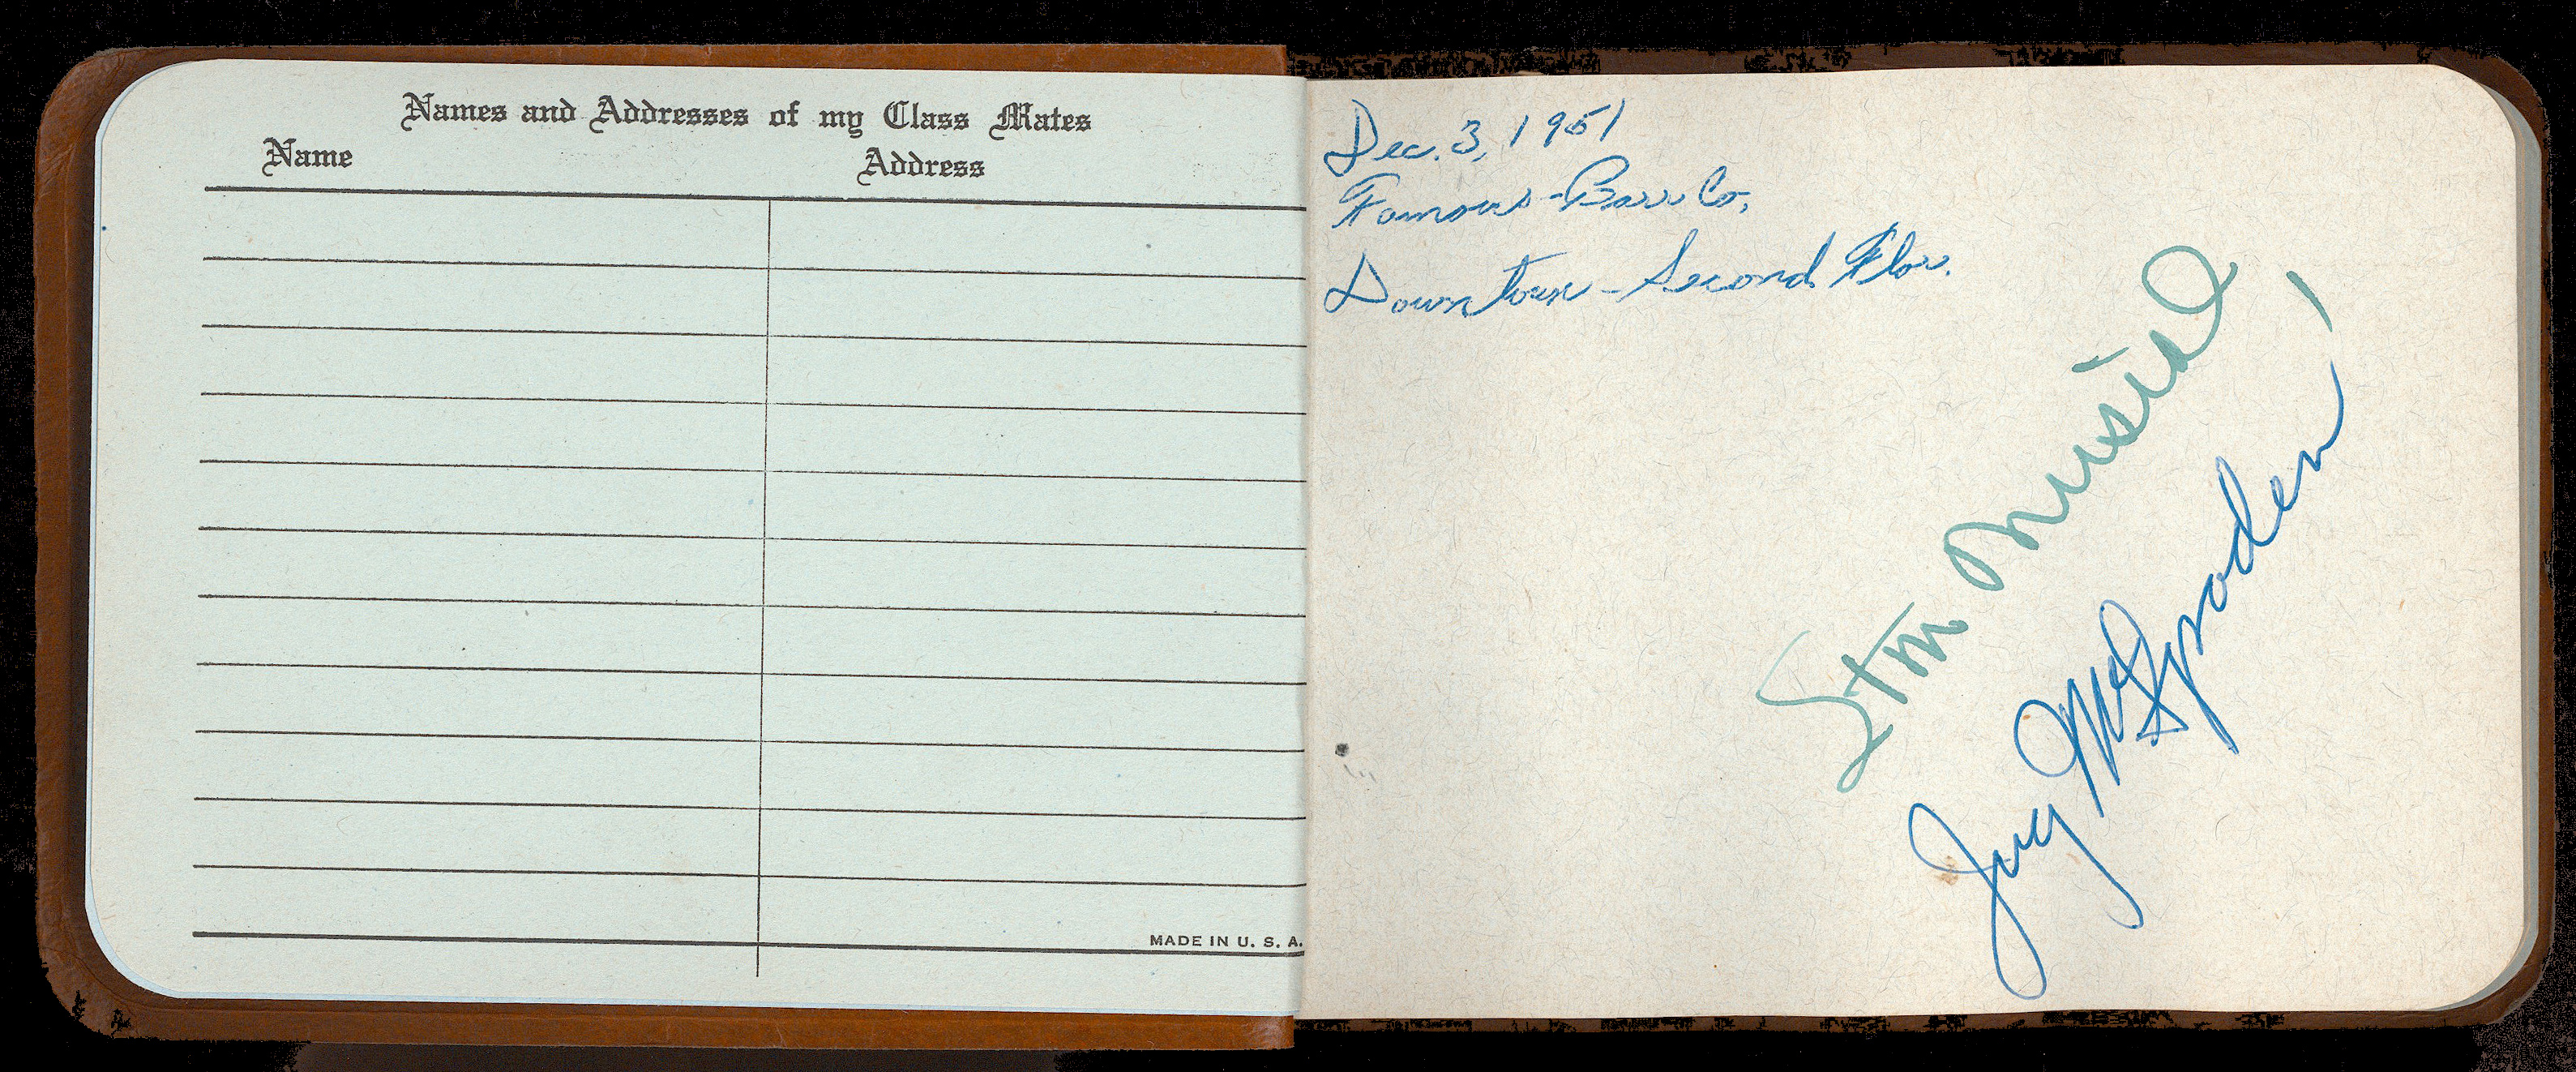 Names and Addresses of my Class Mates
Name Address
MADE IN U. S. A.
Dec. 3, 1951
Famous-Barr Co.
Downtown - Second Flor.
Stan Musial
Jug McSpaden